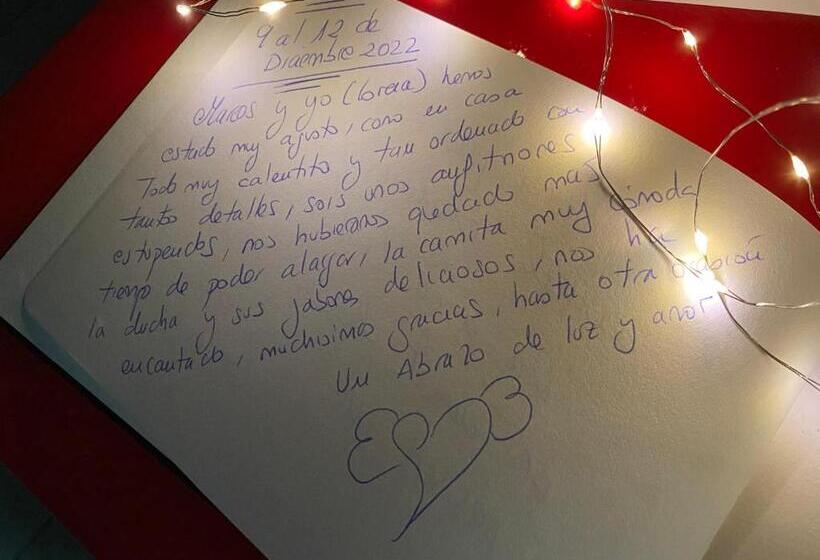 9 al 12 de
Diciembre 2022
Marcos y yo (lorena) hemos
estado muy agusto, como en casa
Todo muy calentito y tan ordenado con
tantos detalles, sois unos anfitriones
estupendos, nos hubieramos quedado mas
tiempo de poder alargar, la camita muy cómoda
la ducha y sus jabones deliciosos, nos ha
encantado, muchisimas gracias, hasta otra ocasión
Un Abrazo de luz y amor